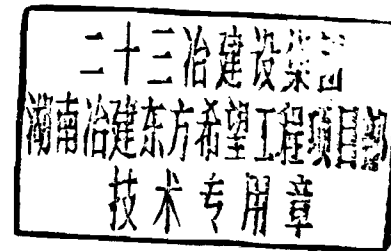 二十三冶建设集团
湖南冶建东方希望工程项目部
技术专用章